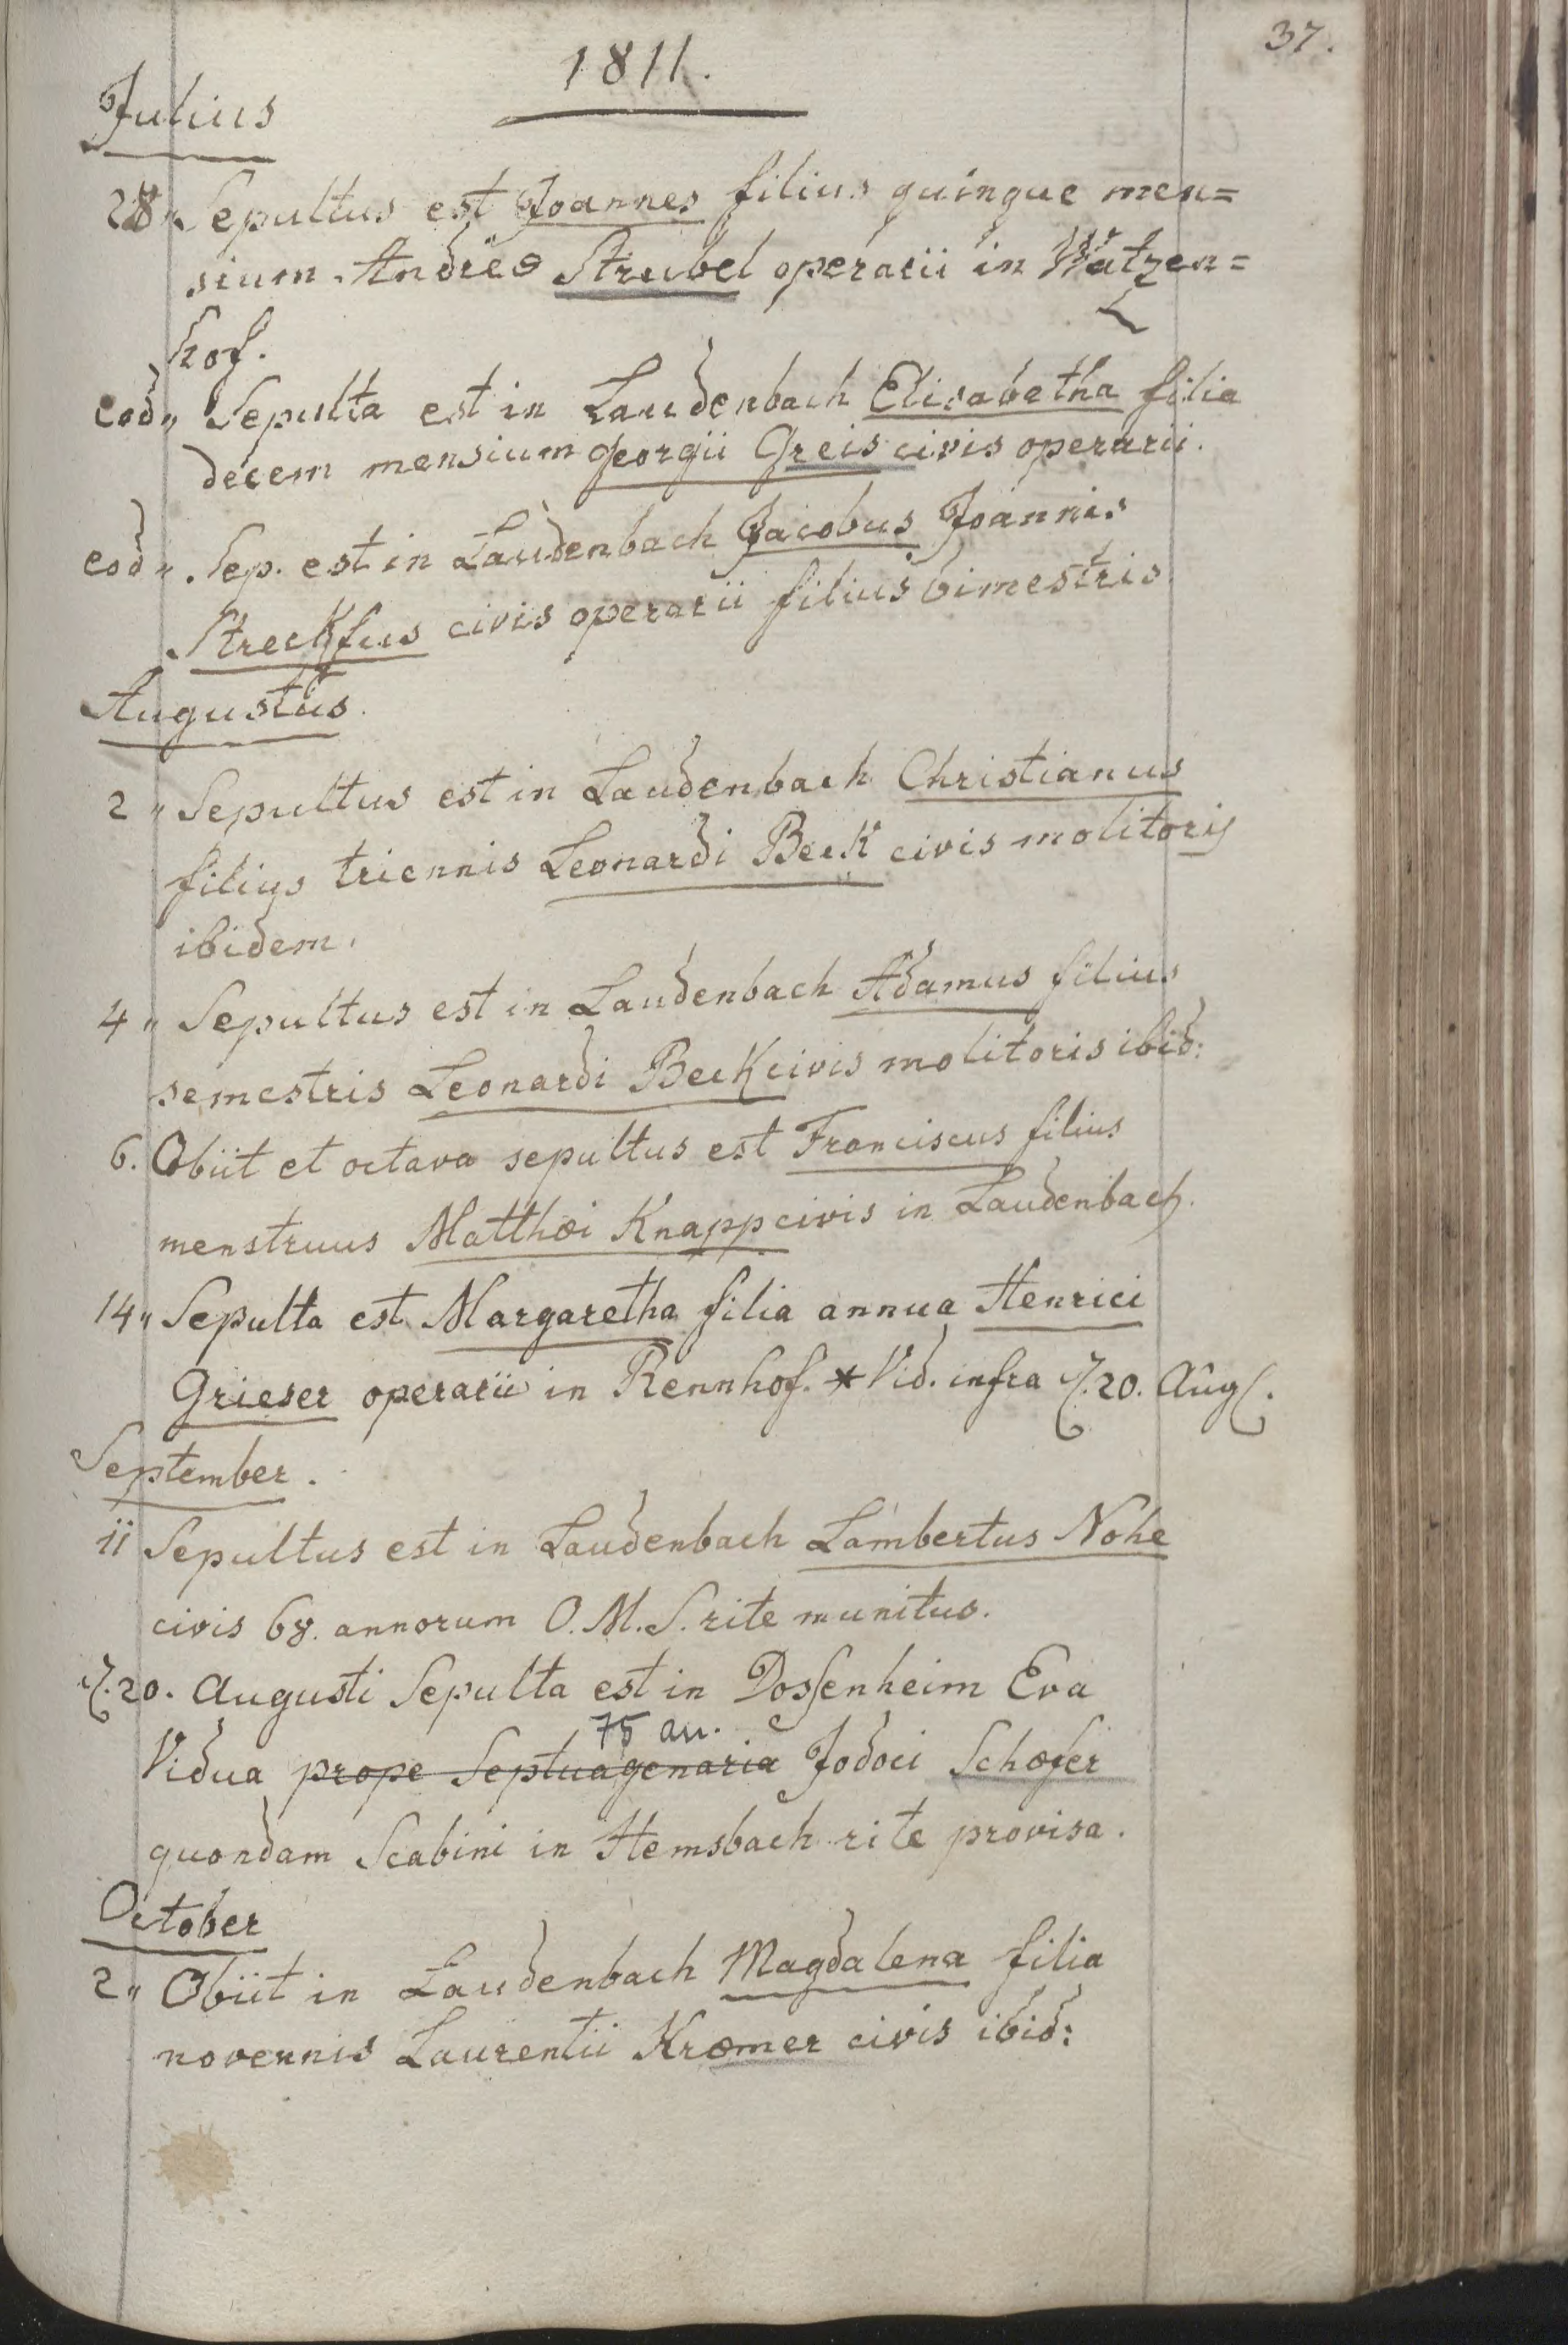 37.
1811.
Julius
28 „ Sepultus est Joannes filius quinque men=
sium Andreæ Strubel operarii in Watzen=
hof.
eod „ Sepulta est in Laudenbach Elisabetha filia
decem mensium Georgii Greis civis operarii.
eod „ Sep. est in Laudenbach Jacobus Joannis
Streckfus civis operarii filius bimestris
Augustus.
2 „ Sepultus est in Laudenbach Christianus
filius triennis Leonardi Beck civis molitoris
ibidem.
4 „ Sepultus est in Laudenbach Adamus filius
semestris Leonardi Beck civis molitoris ibid:
6. Obiit et octava sepultus est Franciscus filius
menstruus Matthæi Knapp civis in Laudenbach.
14 „ Sepulta est Margaretha filia annua Henrici
Grieser operarii in Rennhof. * Vid. infra 20. Aug.
September.
11 Sepultus est in Laudenbach Lambertus Nohe
civis 68. annorum O. M. S. rite munitus.
20. Augusti Sepulta est in Dossenheim Eva
75 an.
Vidua prope Septuagenaria Jodoci Schæfer
quondam Scabini in Hemsbach rite provisa.
October
2 „ Obiit in Laudenbach Magdalena filia
novennis Laurentii Kræmer civis ibid: